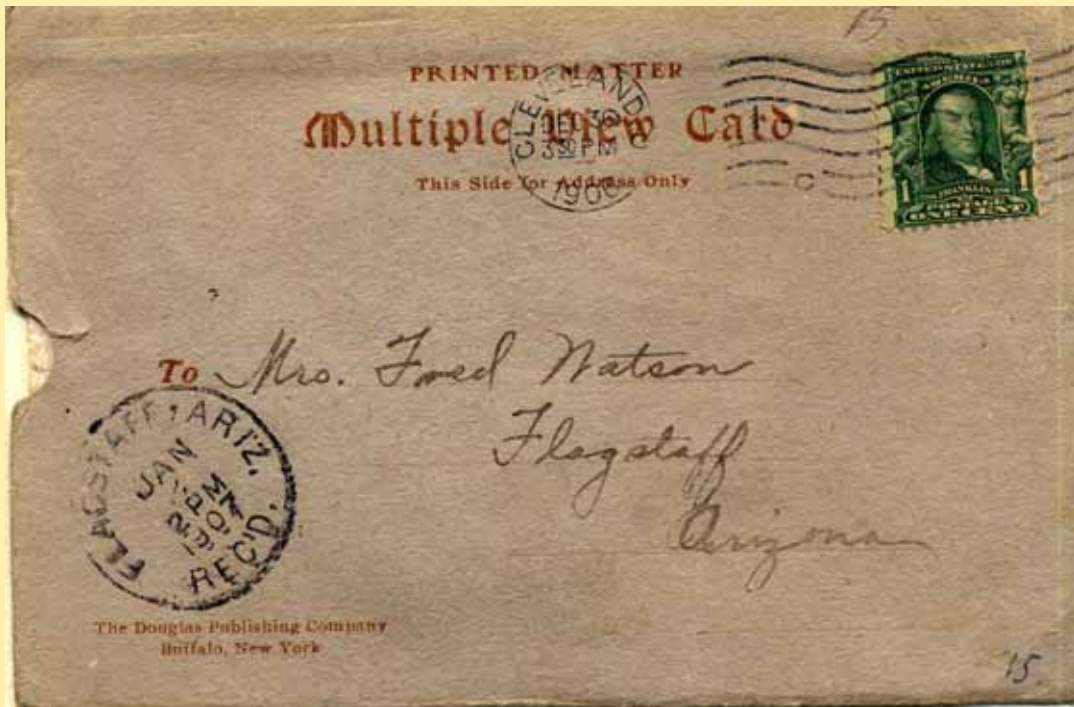 15
PRINTED MATTER
Multiple View Card
This Side for Address Only
CLEVELAND, O
DEC 30
3 30 PM
1906
C
UNITED STATES OF AMERICA
1 FRANKLIN 1
POSTAGE
ONE CENT
To Mrs. Fred Watson
Flagstaff
Arizona
FLAGSTAFF, ARIZ.
JAN
2 PM
1907
REC'D.
The Douglas Publishing Company
Buffalo, New York
15.